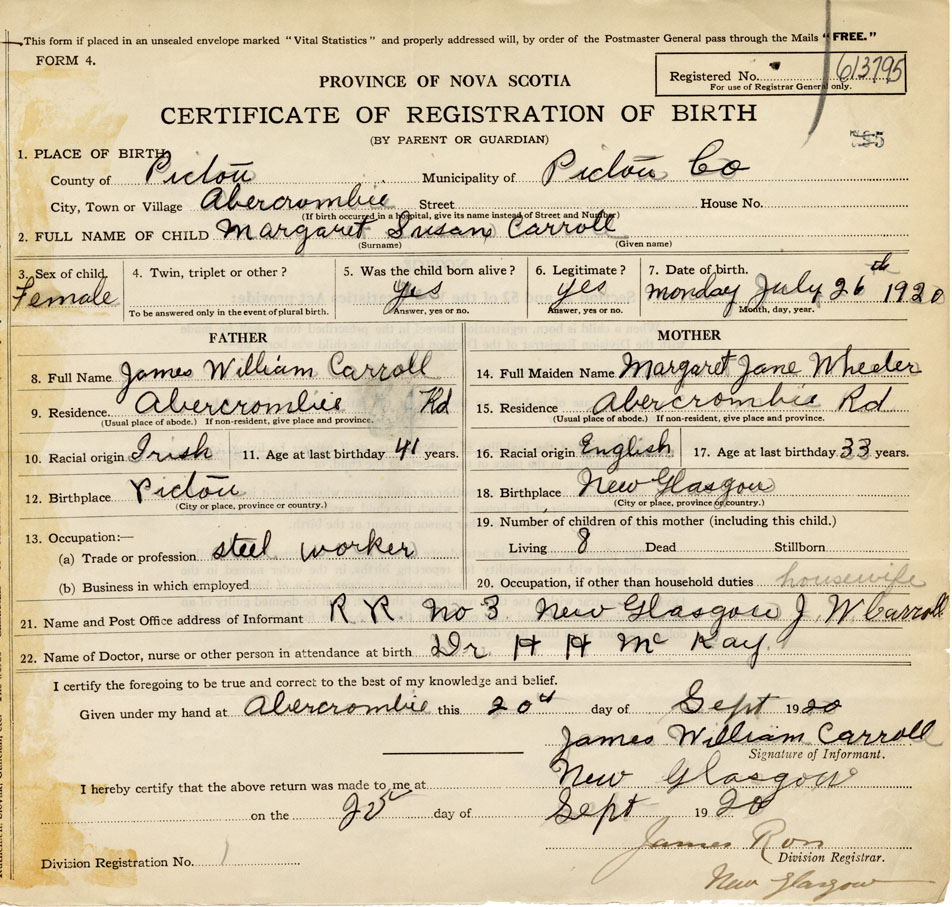 This form if placed in an unsealed envelope marked "Vital Statistics" and properly addressed will, by order of the Postmaster General pass through the Mails "FREE."
FORM 4.
Registered No. 613795
For use of Registrar General only.
PROVINCE OF NOVA SCOTIA
CERTIFICATE OF REGISTRATION OF BIRTH
(BY PARENT OR GUARDIAN)
1. PLACE OF BIRTH
County of Pictou Municipality of Pictou Co
City, Town or Village Abercrombie Street House No.
(If birth occurred in a hospital, give its name instead of Street and Number)
2. FULL NAME OF CHILD Margaret Susan Carroll
(Surname) (Given name)
3. Sex of child. 4. Twin, triplet or other? 5. Was the child born alive? 6. Legitimate? 7. Date of birth.
Female yes yes Monday July 26th 1920
To be answered only in the event of plural birth. Answer, yes or no. Answer, yes or no. Month, day, year.
FATHER MOTHER
8. Full Name James William Carroll 14. Full Maiden Name Margaret Jane Wheeler
9. Residence. Abercrombie Rd 15. Residence Abercrombie Rd
(Usual place of abode.) If non-resident, give place and province. (Usual place of abode.) If non-resident, give place and province.
10. Racial origin Irish 11. Age at last birthday 41 years. 16. Racial origin English 17. Age at last birthday 33 years.
12. Birthplace Pictou 18. Birthplace New Glasgow
(City or place, province or country.) (City or place, province or country.)
13. Occupation:— 19. Number of children of this mother (including this child.)
(a) Trade or profession steel worker Living 8 Dead Stillborn
(b) Business in which employed 20. Occupation, if other than household duties housewife
21. Name and Post Office address of Informant R R. No 3 New Glasgow J. W Carroll
22. Name of Doctor, nurse or other person in attendance at birth Dr H H Mc Kay.
I certify the foregoing to be true and correct to the best of my knowledge and belief.
Given under my hand at Abercrombie this 20th day of Sept 1920
James William Carroll
Signature of Informant.
I hereby certify that the above return was made to me at New Glasgow
on the 25 day of Sept 1920
James Ross
Division Registration No. 1 Division Registrar.
New Glasgow